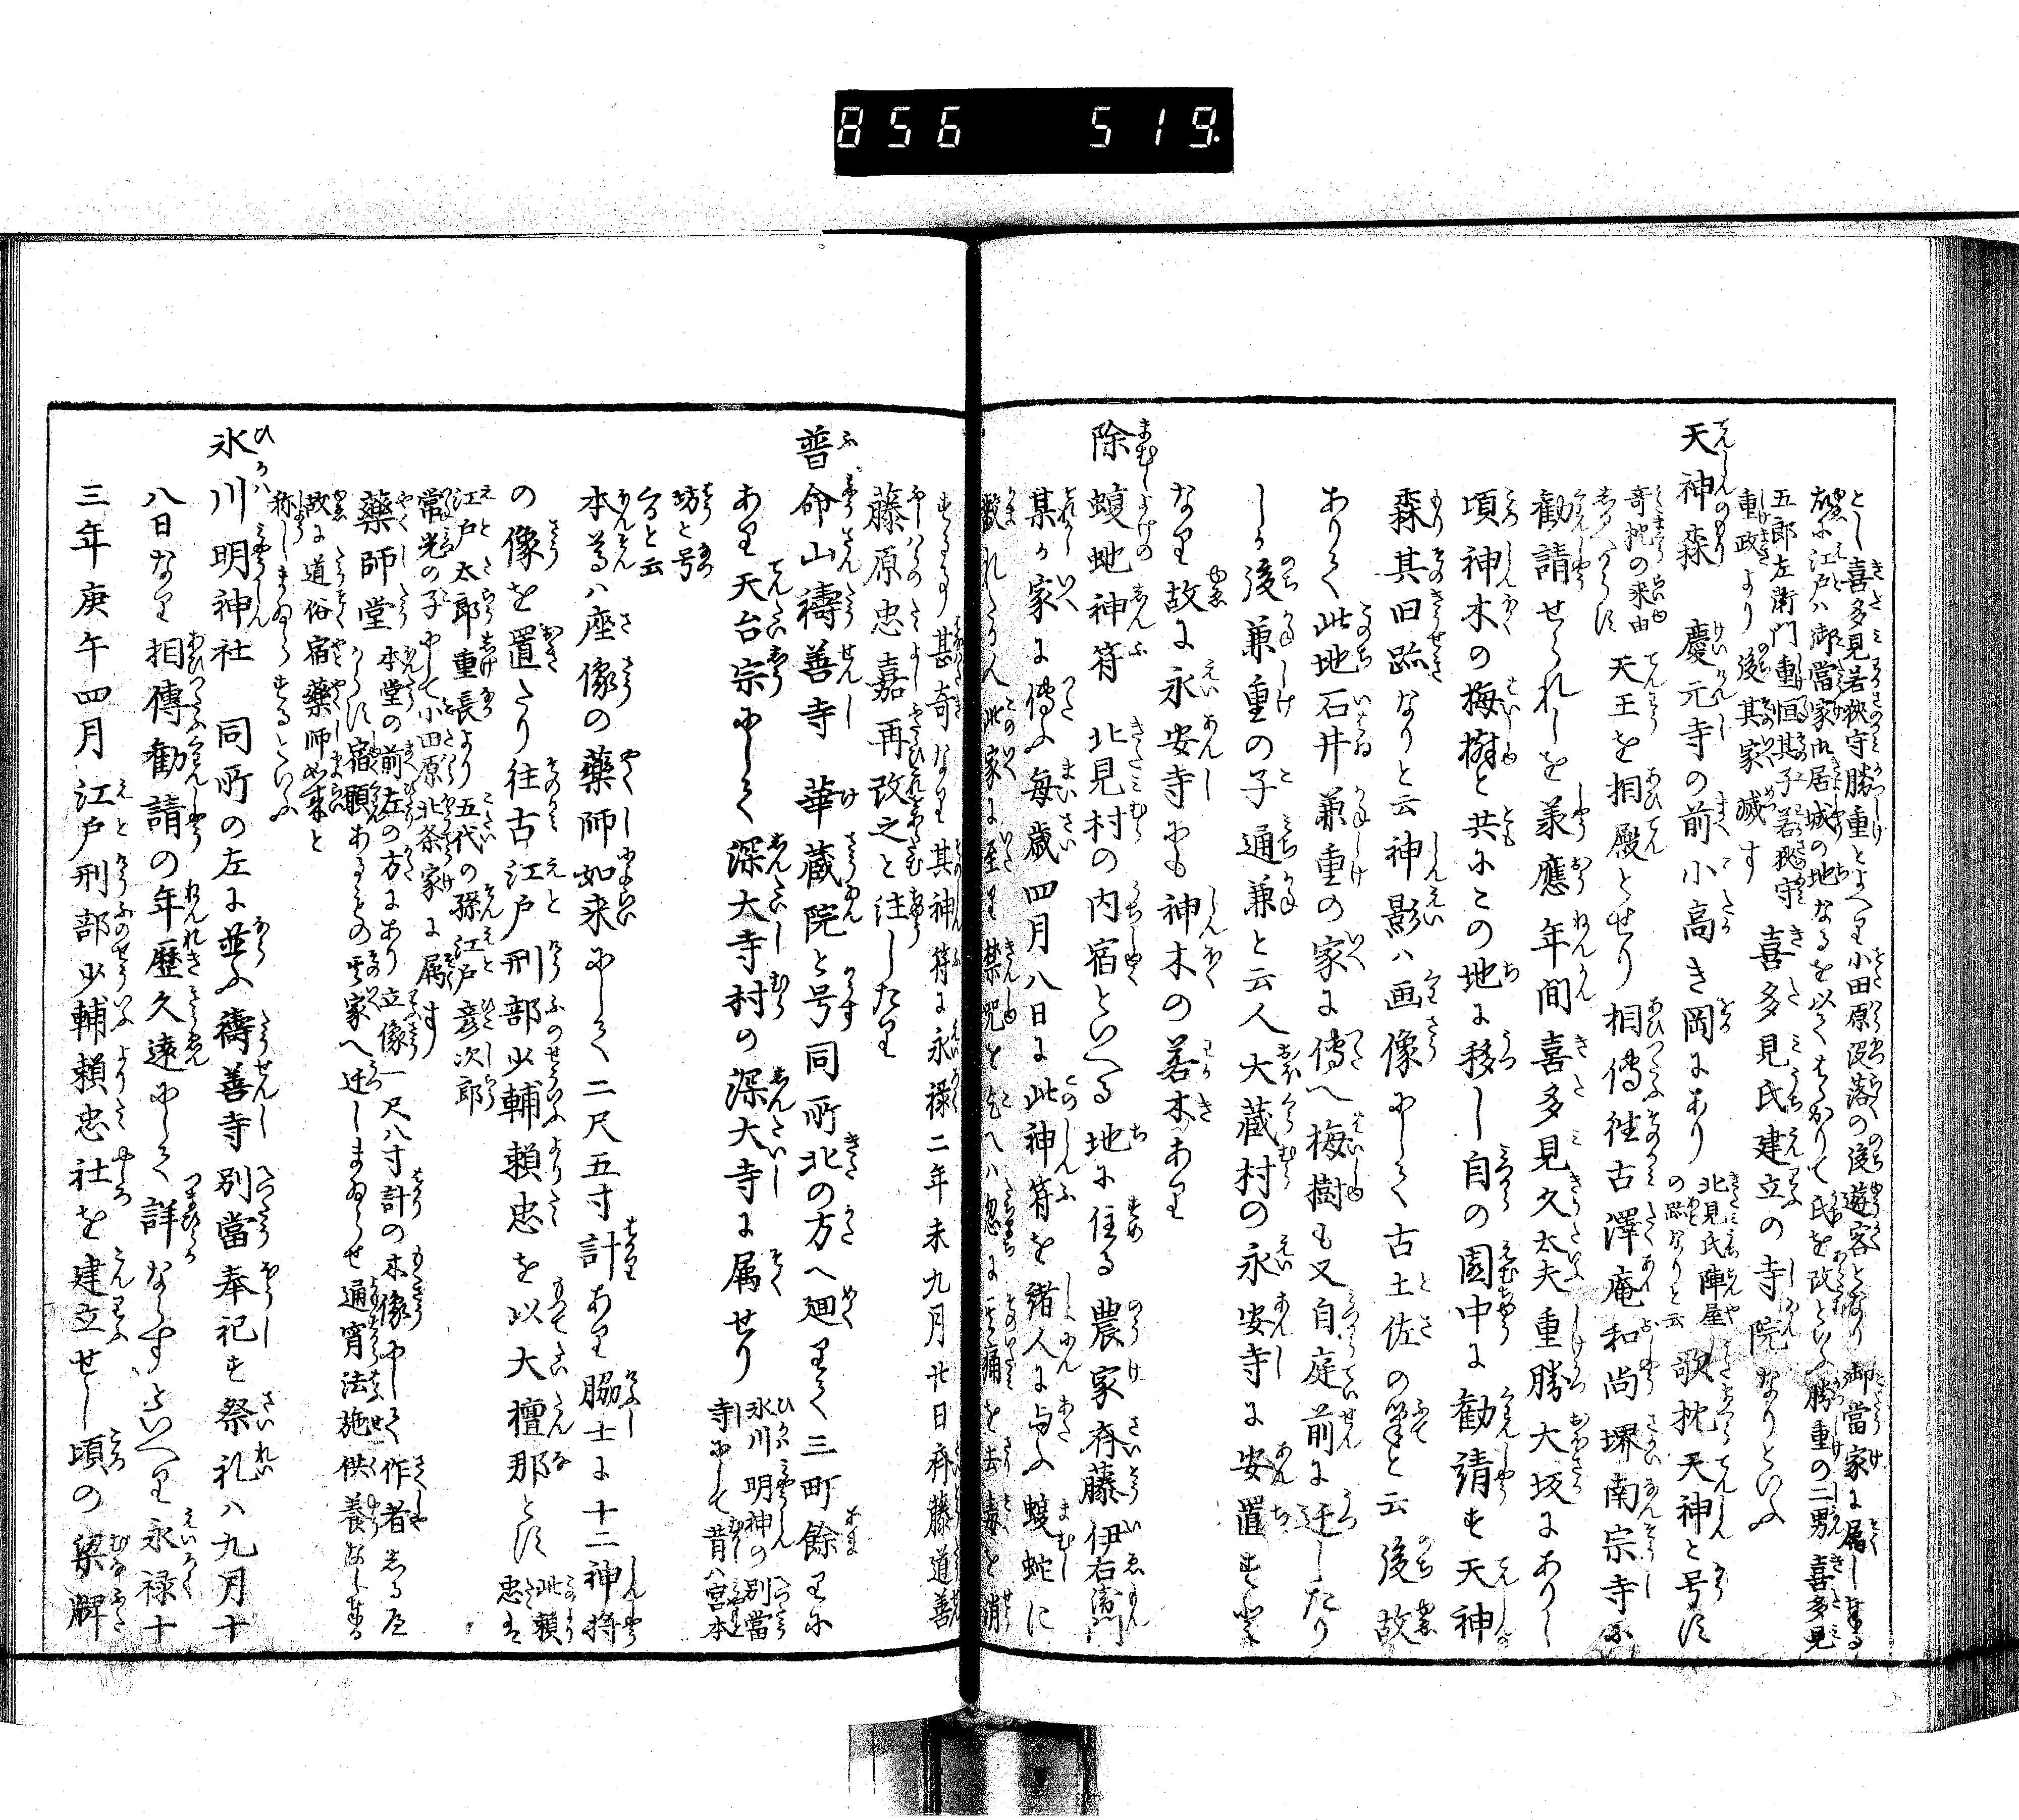 856 519.
とし喜多見若狭守勝重とよへり小田原没落の後遊客となり御當家に属し奉る
故に江戸ハ御當家御居城の地なるを以てはゝかりて氏を改といふ勝重の二男喜多見
五郎左衛門重恒其子若狭守
重政より後其家滅す
喜多見氏建立の寺院なりといふ
天神森 慶元寺の前小高き岡にあり
北見氏陣屋
の跡なりと云
歌枕天神と号す
奇枕の来由
しるへからす
天王を相殿とせり相傳往古澤庵和尚堺南宗寺に
勸請せられしを承應年間喜多見久太夫重勝大坂にありし
頃神木の梅樹と共にこの地に移し自の園中に勸請す天神
森其旧跡なりと云神影ハ画像にして古土佐の筆と云後故
ありて此地石井兼重の家に傳へ梅樹も又自庭前に迁したり
しか後兼重の子通兼と云人大蔵村の永安寺に安置す
なり故に永安寺にも神木の若木あり
除蝮虵神符 北見村の内宿といへる地に住る農家斉藤伊右衛門
某か家に傳ふ毎歳四月八日に此神符を諸人に与ふ蝮蛇に
囓れたる人此家に至り禁咒を乞へハ忽に其痛を去毒を消
する事甚奇なり其神符に永禄二年未九月廿日斉藤道善
藤原忠嘉再改之と注したり
普命山禱善寺 華蔵院と号同所北の方へ廻りて三町餘りに
あり天台宗にして深大寺村の深大寺に属せり
氷川明神の別當
寺にして昔ハ宮本
坊と号
るると云
本尊ハ座像の藥師如来にして二尺五寸計あり脇士に十二神将
の像を置たり往古江戸刑部少輔頼忠を以大檀那とす
此頼
忠は
江戸太郎重長より五代の孫江戸彦次郎
常光の子にして小田原北条家に属す
藥師堂
本堂の前左の方にあり立像一尺八寸計の木像にして作者しる
からす宿願あるものの其家へ迁しまゐらせ通宵法施供養なし奉る
故に道俗宿藥師如来と
称しまゐらするといふ
氷川明神社 同所の左に並ふ禱善寺別當奉祀す祭礼ハ九月十
八日なり相傳勸請の年歴久遠にして詳ならすといへり永禄十
三年庚午四月江戸刑部少輔頼忠社を建立せし頃の梁牌